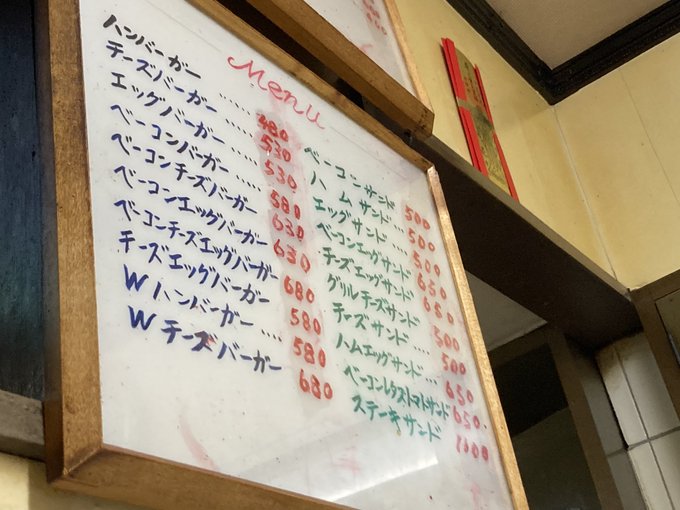 Menu
ハンバーガー ...... 480
チーズバーガー ...... 530
エッグバーガー ...... 530
ベーコンバーガー ..... 580
ベーコンチーズバーガー 630
ベーコンエッグバーガー 630
ベーコンチーズエッグバーガー 680
チーズエッグバーガー 580
W ハンバーガー .... 580
W チーズバーガー 680
ベーコンサンド 500
ハムサンド... 500
エッグサンド... 500
ベーコンエッグサンド 650
チーズエッグサンド 650
グリルチーズサンド 500
チーズサンド ... 500
ハムエッグサンド ... 650
ベーコンレタストマトサンド 650
ステーキサンド 1000